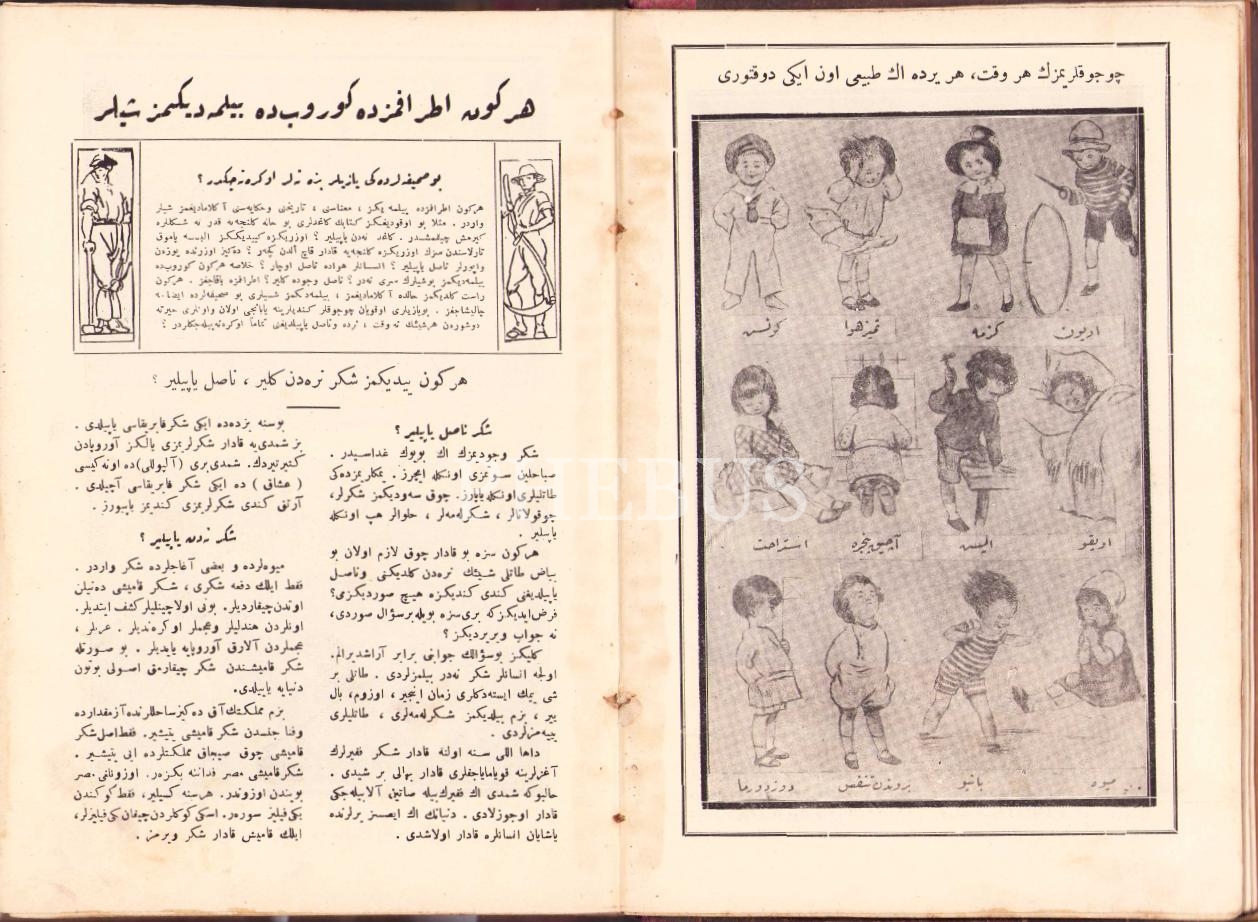 هر كون اطرافمزده كوروب ده بيلمه ديكمز شيلر
بو صحيفه لرده كی يازيلر بزه نه لر اوكره ته جكدر ؟
هر كون اطرافزده بيلمه يكز ، معناسنی ، تاريخنی وحكايه سنی آ كلاماديغمز شيلر
واردر . مثلا بو اوقوديغكز كتابك كاغدلری بو حاله كلنجه يه قدر نه شكللره
كيرمش چيقمشدر . كاغد نه دن ياپيلير ؟ اوزريكزه كييديككز البسه پاموق
تارلاسندن سزك اوزريكزه كلنجه يه قادار قاچ ألدن كچر ؟ ده كيز اوزرنده يوزن
واپورلر ناصل ياپيلير ؟ انسانلر هواده ناصل اوچار ؟ خلاصه هر كون كوروب ده
بيلمه ديكمز بو شيلرك سری نه در ؟ ناصل وجوده كلير ؟ اطرافمزه باقاجغز . هر كون
راست كلديكمز حالده آ كلاماديغمز ، بيلمه ديكمز شيلری بو صحيفه لرده ايضاحه
چاليشاجغز . بو يازيلری اوقويان چوجوقلر كنديلرينه يابانجی اولان واونلری حيرته
دوشورن هر شيئك نه وقت ، نرده وناصل ياپيلديغنی تماماً اوكره نه بيله جكلردر ؟
هر كون ييديكمز شكر نره دن كلير ، ناصل ياپيلير ؟
شكر ناصل ياپيلير ؟
شكر وجوديمزك اك بويوك غداسيدر .
صباحلين سوتمزی اونكله ايچرز . يمكلريمزده كی
طاتليلری اونكله ياپارز . چوق سه وديكمز شكرلر،
چوقولاتالر ، شكرلمه لر ، حلوالر هپ اونكله
ياپيلير .
هر كون سزه بو قادار چوق لازم اولان بو
بياض طاتلی شيئك نره دن كلديكنی وناصل
ياپيلديغنی كندی كنديكزه هيچ صورديكزمی؟
فرض ايديكز كه بری سزه بويله بر سؤال صوردی،
نه جواب ويريرديكز ؟
كليكز بو سؤالك جوابنی برابر آراشديرالم.
اولجه انسانلر شكر نه در بيلمزلردی . طاتلی بر
شی يمك ايسته دكلری زمان انجير ، اوزوم، بال
يير ، بزم بيلديكمز شكرلمه لری ، طاتليلری
ييه مزلردی .
داها اللی سنه اولنه قادار شكر فقيرلرك
آغزلرينه قوياماياجقلری قادار بهالی بر شيدی .
حالبوكه شمدی اك فقيرك بيله صاتين آلابيله جكی
قادار اوجوزلادی . دنيانك اك ايصسز يرلرنده
ياشايان انسانلره قادار اولاشدی .
بو سنه بزده ده ايكی شكر فابريقاسی ياپيلدی .
بز شمدی يه قادار شكرلريمزی يالكز آوروپادن
كتيرتيردك. شمدی بری (آلپوللی) ده اوته كيسی
( عشاق ) ده ايكی شكر فابريقاسی آچيلدی .
آرتق كندی شكرلريمزی كنديمز ياپيورز .
شكر نه دن ياپيلير ؟
ميوه لرده و بعضی آغاجلرده شكر واردر .
فقط ايلك دفعه شكری ، شكر قاميشی ده نيلن
اوتدن چيقارديلر. بونی اولا چينليلر كشف ايتديلر.
اونلردن هنديلير وعجملر اوكره نديلر . عربلر ،
عجملردن آلارق آوروپايه يايديلر . بو صورتله
شكر قاميشندن شكر چيقارمق اصولی بوتون
دنيايه ياييلدی.
بزم مملكتك آق ده كيز ساحللرنده آز مقدارده
وفنا جنسدن شكر قاميشی يتيشير . فقط اصل شكر
قاميشی چوق صيجاق مملكتلرده ايی يتيشير .
شكر قاميشی مصر فداننه بكزه ر. اوزونلغی مصر
بويندن اوزوندر. هر سنه كسيلير، فقط كوكندن
يكی فيليز سورر. اسكی كوكلردن چيقان يكی فيليزلر،
ايلك قاميش قادار شكر ويرمز .
چوجوقلريمزك هر وقت، هر يرده اك طبيعی اون ايكی دوقتوری
اويون
كزمه
تميز هوا
كونش
اويقو
البسه
آچيق پنجره
استراحت
ميوه
بانيو
بروندن تنفس
دوز دورما
IEBUS